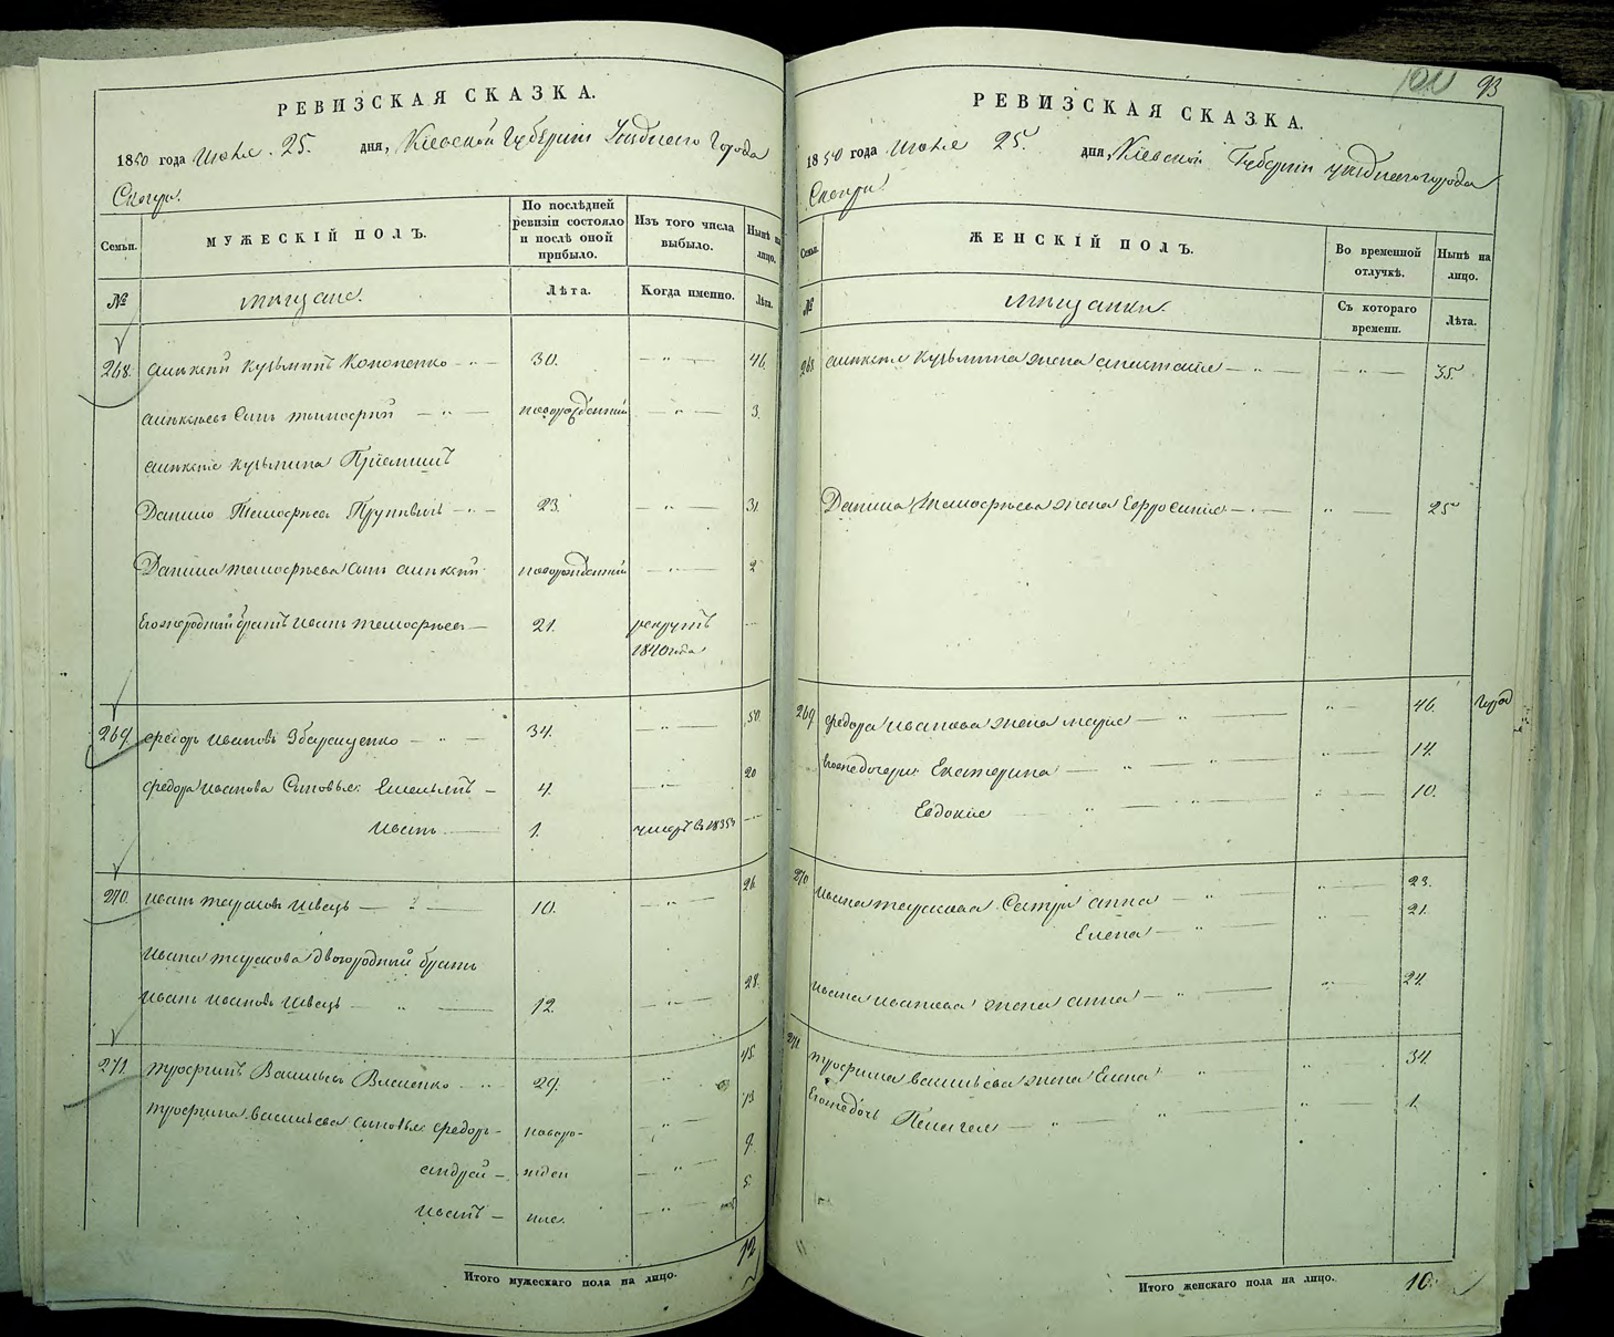 РЕВИЗСКАЯ СКАЗКА.
1850 года Июля 25. дня, Кіевской Губерніи Уезднаго Города
Сквиры.
Семьи.
МУЖЕСКІЙ ПОЛЪ.
По послѣдней ревизіи состояло и послѣ оной прибыло.
Изъ того числа выбыло.
Нынѣ на лицо.
№
мещане.
Лѣта.
Когда именно.
Лѣта.
268. Алексей Кузьминъ Кононенко 30. 46.
Алексеевъ Сынъ Тимофей новорожденный 3.
Алексея Кузьмина Приемышъ
Данило Тимофеевъ 23. 31.
Данила Тимофеева Сынъ Алексей новорожденный 2
Егожеродный братъ Иванъ Тимофеевъ 21. рекрутъ
1840 года
269. Федоръ Ивановъ Збаращенко 34. 50.
Федора Иванова Сыновья: Емельянъ 4. 20
Иванъ 1. умеръ въ 1835
270. Иванъ Марковъ Швецъ 10. 26.
Ивана Маркова двоюродный братъ
Иванъ Ивановъ Швецъ 12. 28.
271. Трофимъ Васильевъ Власенко 29. 45.
Трофима Васильева сыновья: Федоръ новоро- 13
Андрей жден 9.
Иванъ ные. 5.
Итого мужескаго пола на лицо. 12
93
РЕВИЗСКАЯ СКАЗКА.
1850 года Июля 25. дня, Кіевской Губерніи уезднаго города
Сквиры.
Семьи.
ЖЕНСКІЙ ПОЛЪ.
Во временной отлучкѣ.
Нынѣ на лицо.
№
мещанки.
Съ котораго времени.
Лѣта.
268 Алексея Кузьмина жена Анастасия 35.
Данила Тимофеева жена Ефросиния 25
269 Федора Иванова жена Мария 46.
Егожедочери: Екатерина 14.
Евдокия 10.
270 Ивана Маркова Сестры Анна 23.
Елена 21.
Ивана Иванова жена Анна 24.
271 Трофима Васильева жена Елена 34.
Егожедочь Пелагея 1.
Итого женскаго пола на лицо. 10.